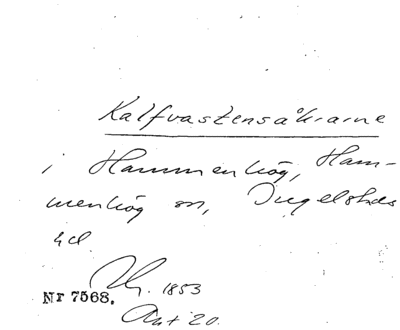 Kalfvastensåkrarne
i Hammenhög, Ham-
menhög sn, Ingelstads
hd
Nr 7568.
1853
Akt 20.